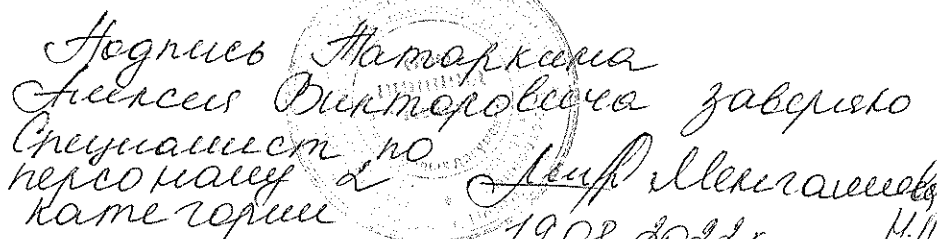 Подпись Татаркина
Алексея Викторовича заверяю
Специалист по
персоналу 2
категории
19.08.2022 г.